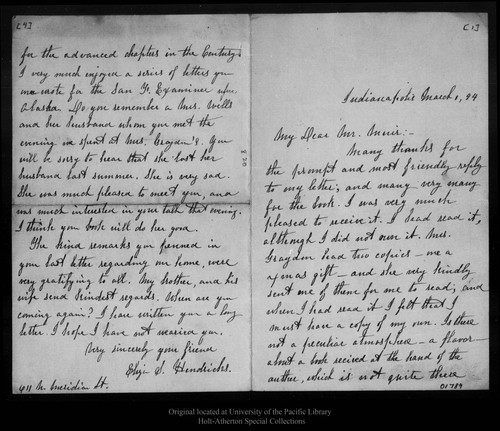 [4]
for the advanced chapters in the Century.
I very much enjoyed a series of letters you
wrote for the San F. Examiner upon
Alaska. Do you remember a Mrs. Wells
and her husband whom you met the
evening we spent at Mrs. Graydon's. You
will be sorry to hear that she lost her
husband last summer. She is very sad.
She was much pleased to meet you, and
was much interested in your talk that evening.
I think your book will do her good.
The kind remarks you penned in
your last letter regarding our home, were
very gratifying to all. My brother, and his
wife send kindest regards. When are you
coming again? I have written you a long
letter. I hope I have not wearied you.
Very sincerely your friend
Eliza S. Hendricks.
411 N. Meridian St.
[1]
Indianapolis March 1, 94
My Dear Mr. Muir:-
Many thanks for
the prompt and most friendly reply
to my letter; and many very many
for the book. I was very much
pleased to receive it. I had read it,
although I did not own it. Mrs.
Graydon had two copies – one a
xmas gift – and she very kindly
sent one of them for me to read; and
when I had read it I felt that I
must have a copy of my own. Is there
not a peculiar atmosphere – a flavor –
about a book received at the hand of the
author, which is not quite there
01789
Original located at University of the Pacific Library
Holt-Atherton Special Collections